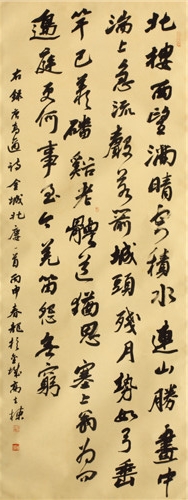 北樓西望滿晴空積水連山勝畫中
湍上急流聲若箭城頭殘月勢如弓垂
竿已羨磻谿老體道猶思塞上翁為問
邊庭更何事至今羌笛怨無窮
右錄唐高適詩金城北樓一首丙申春於金城高